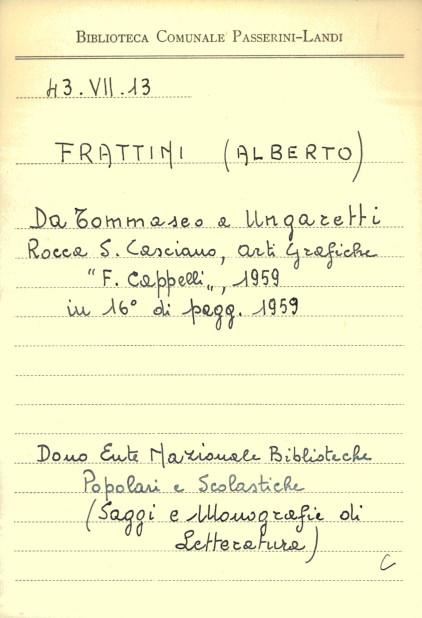 BIBLIOTECA COMUNALE PASSERINI-LANDI
43.VII.13
FRATTINI (ALBERTO)
Da Tommaseo a Ungaretti
Rocca S. Casciano, Arti Grafiche
"F. Cappelli", 1959
in 16° di pagg. 1959
Dono Ente Nazionale Biblioteche
Popolari e Scolastiche
(Saggi e Monografie di
Letteratura)
C